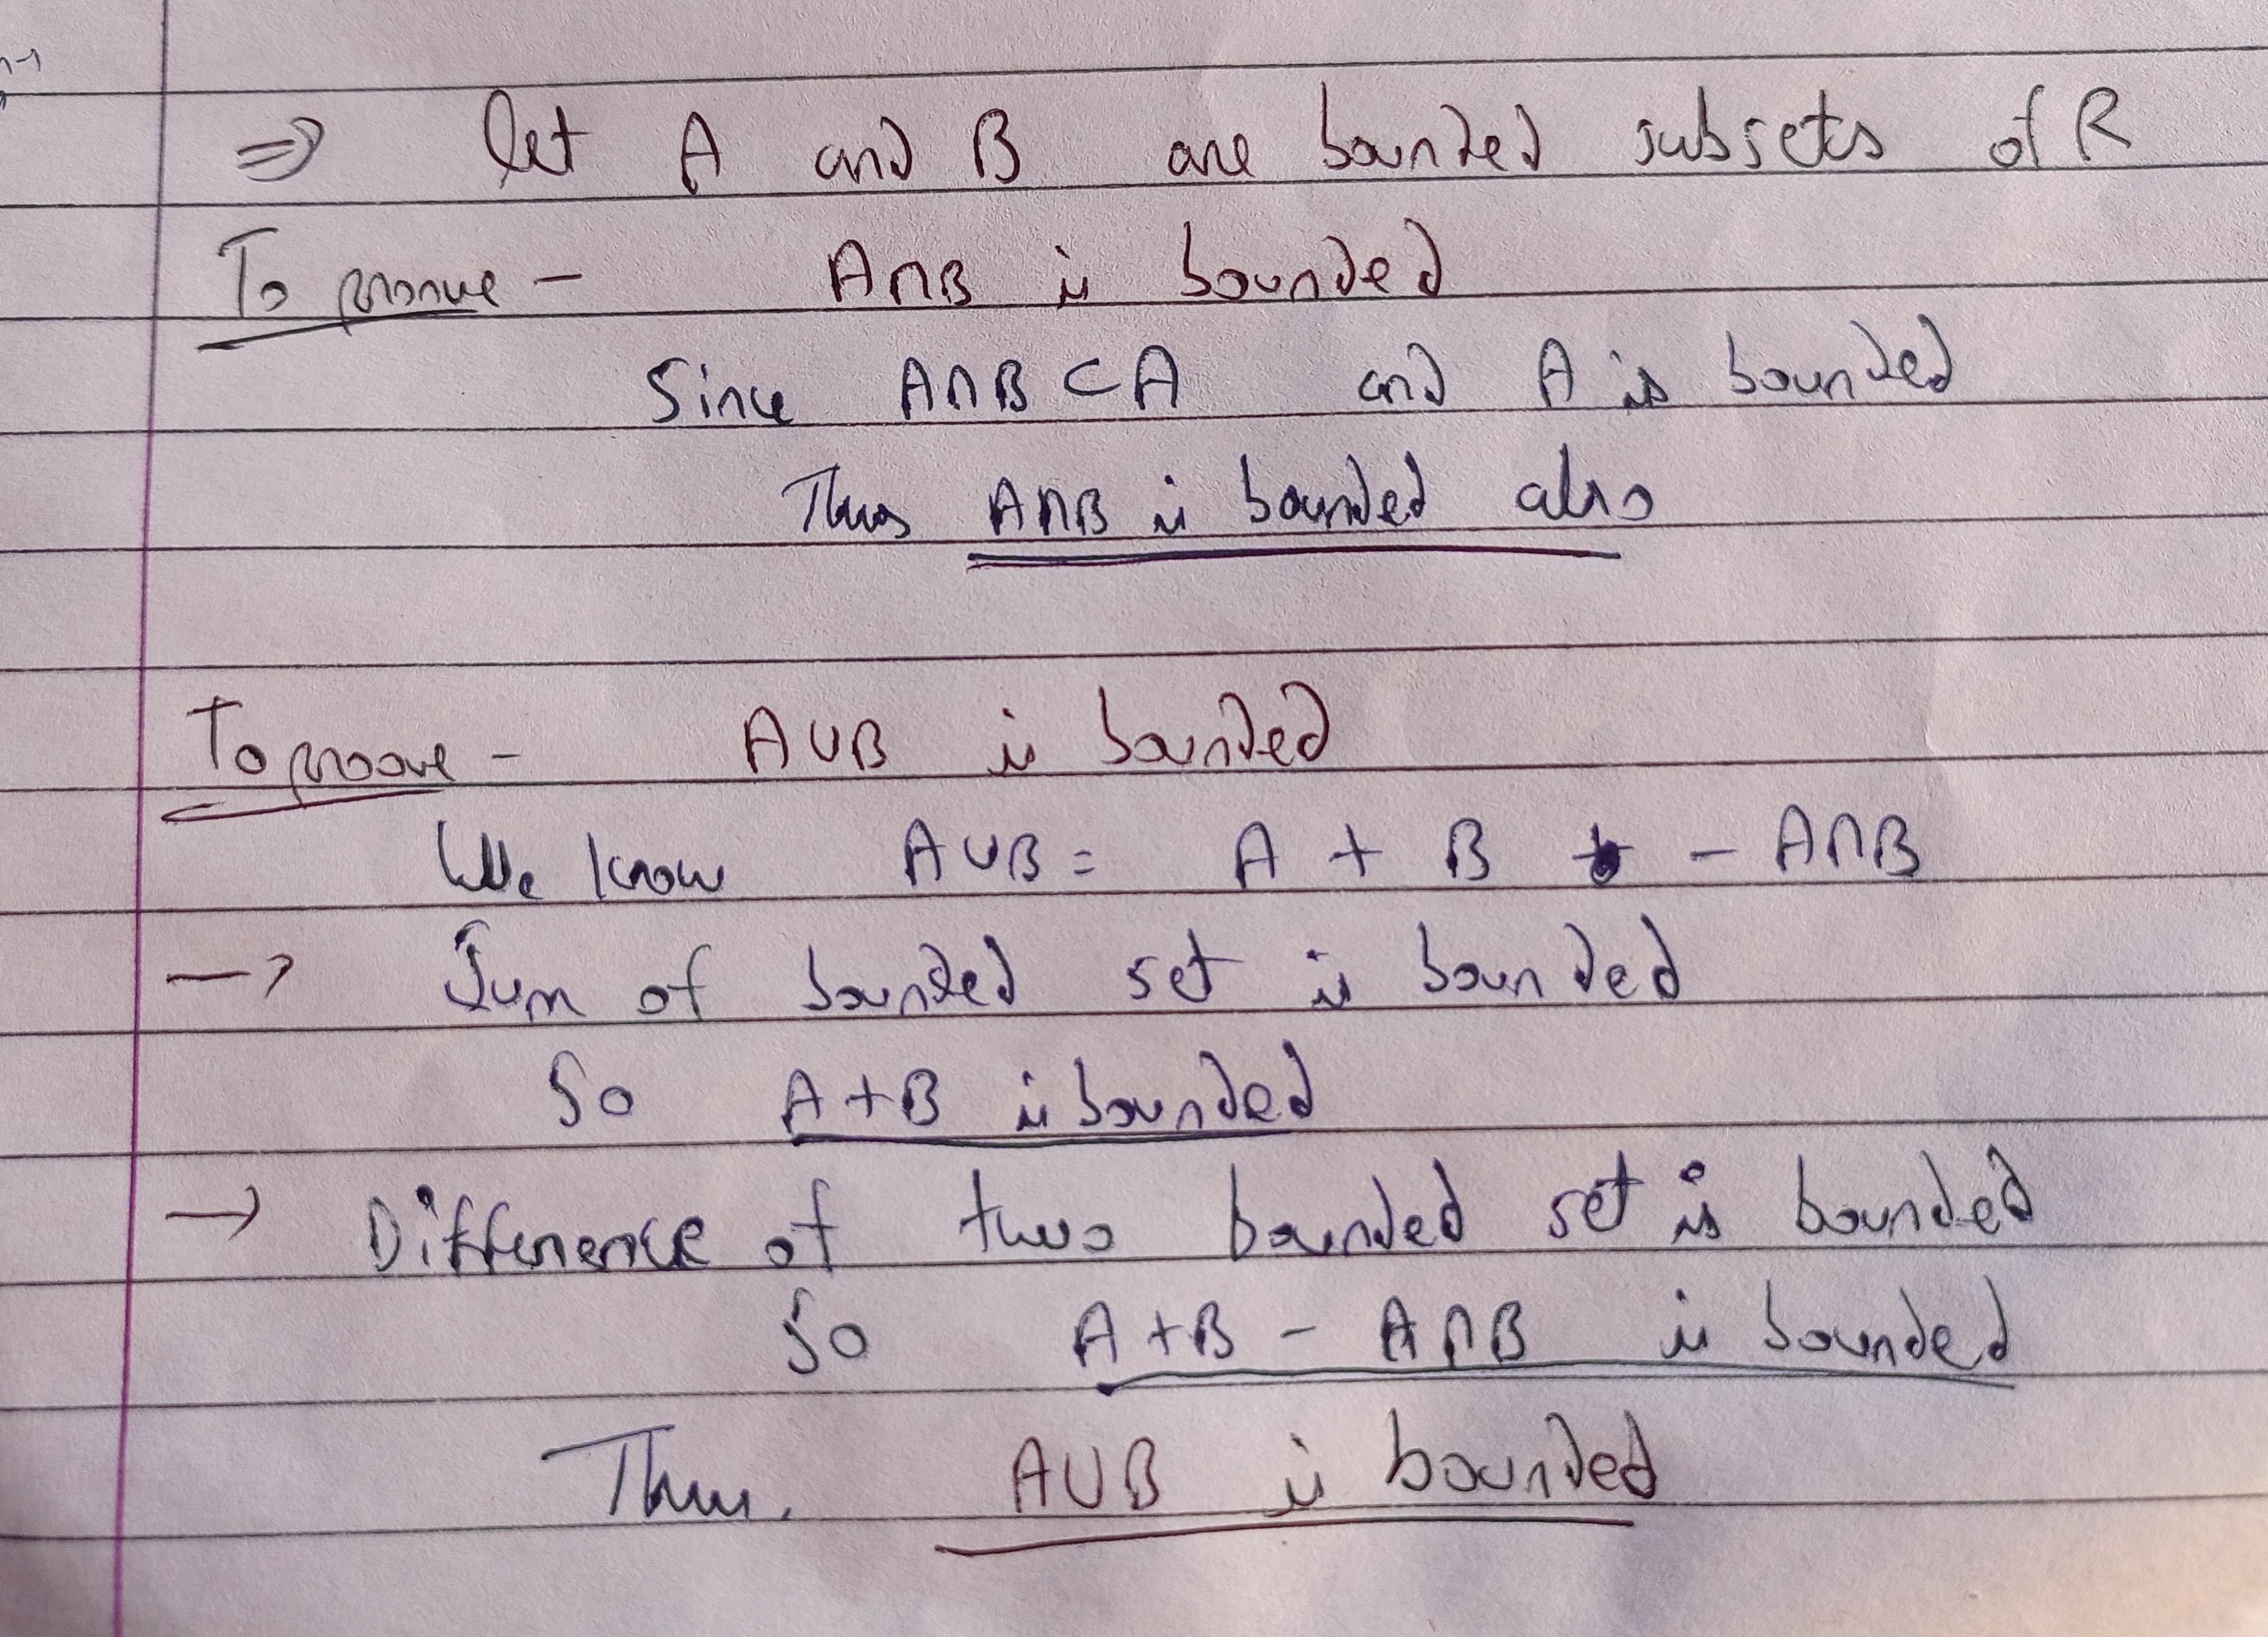 n-1
⇒ let A and B are bounded subsets of R
To proove - A∩B is bounded
Since A∩B ⊂ A and A is bounded
Thus A∩B is bounded also
To proove - A∪B is bounded
We know A∪B = A + B - A∩B
→ Sum of bounded set is bounded
So A+B is bounded
→ Difference of two bounded set is bounded
So A+B - A∩B is bounded
Thus, A∪B is bounded